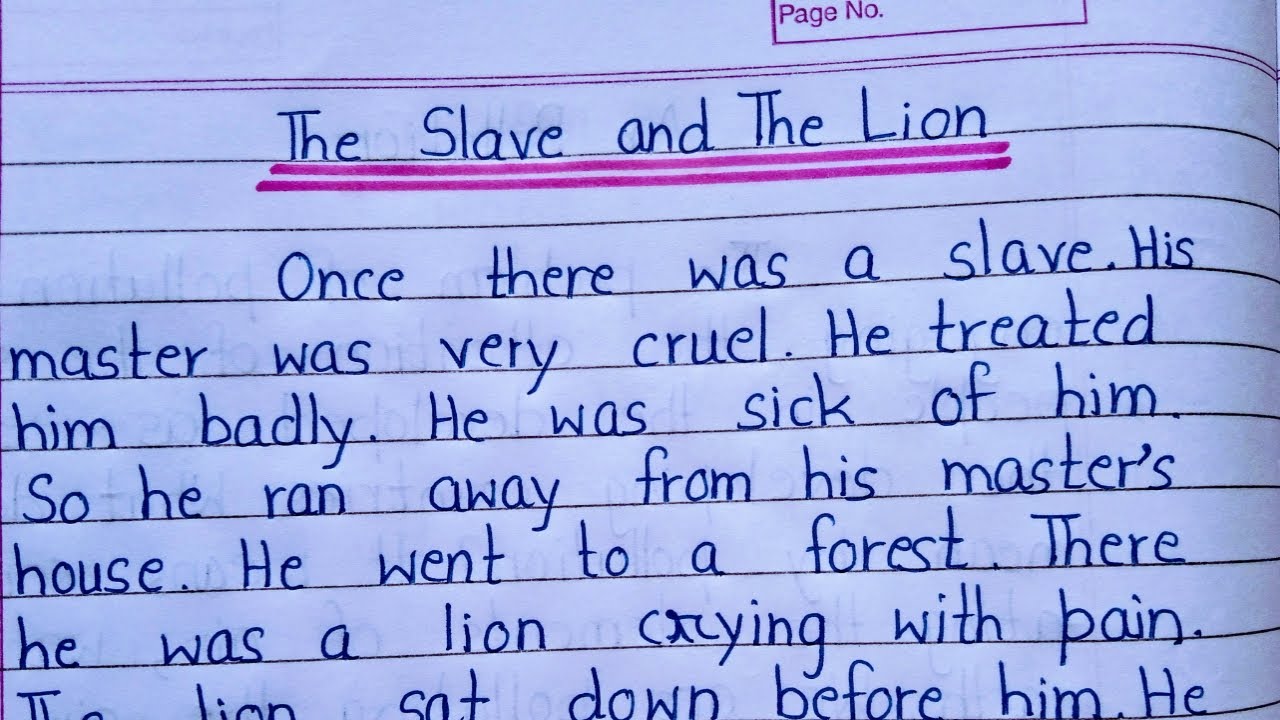 Page No.
The Slave and The Lion
Once there was a slave. His
master was very cruel. He treated
him badly. He was sick of him.
So he ran away from his master's
house. He went to a forest. There
he was a lion crying with pain.
lion sat down before him. He